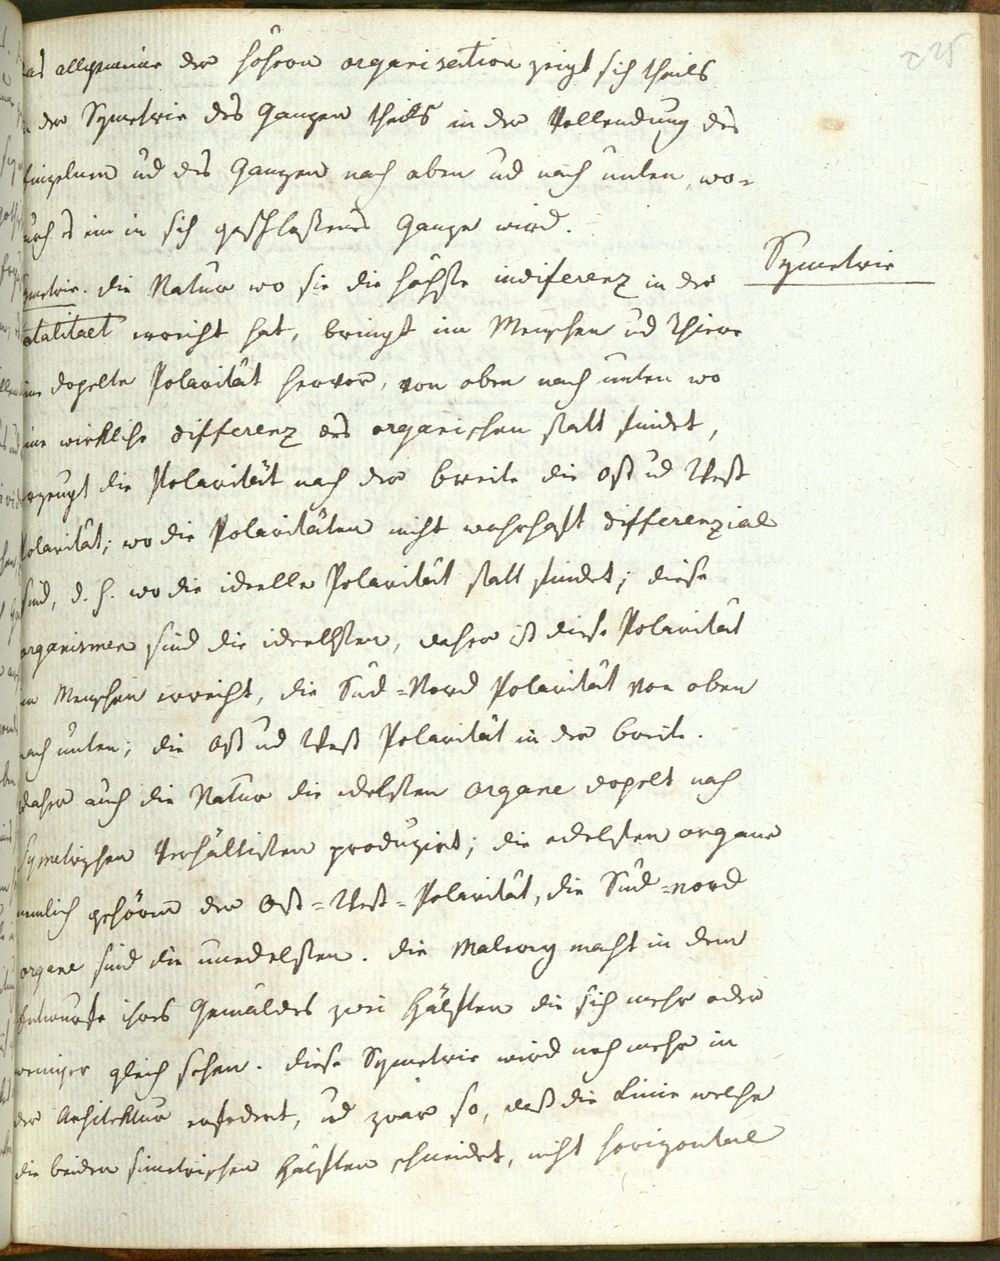 225
das allgemeine der höhern organisation zeigt sich theils
in der Symetrie des Ganzen theils in der Vollendung des
Einzelnen ud des Ganzen nach oben ud nach unten, wo-
durch es ein in sich geschloßenes Ganze wird.
Symetrie
Symetrie. die Natur wo sie die höchste indiferenz in der
totalitaet erreicht hat, bringt im Menschen ud Thiere
eine dopelte Polarität hervor, von oben nach unten wo
eine wirkliche differenz des organischen statt findet,
erzeugt die Polarität nach der breite die Ost ud West
Polarität; wo die Polaritäten nicht wahrhaft differenzial
sind, d. h. wo die ideelle Polarität statt findet; diese
organismen sind die ideellsten, daher ist diese Polarität
im Menschen erreicht, die Süd-Nord Polarität von oben
nach unten; die Ost ud West Polarität in der breite.
daher auch die Natur die edelsten organe dopelt nach
symetrischen Verhältißen produzirt; die edelsten organe
nemlich gehören der Ost-West-Polarität, die Süd-nord
organe sind die unedelsten. die Malerey macht in dem
Entwurfe ihres Gemäldes zwei Hälften die sich mehr oder
weniger gleich sehen. diese Symetrie wird noch mehr in
der Architektur erfodert, ud zwar so, daß die Linie welche
die beiden simetrischen Hälften schneidet, nicht horizontal